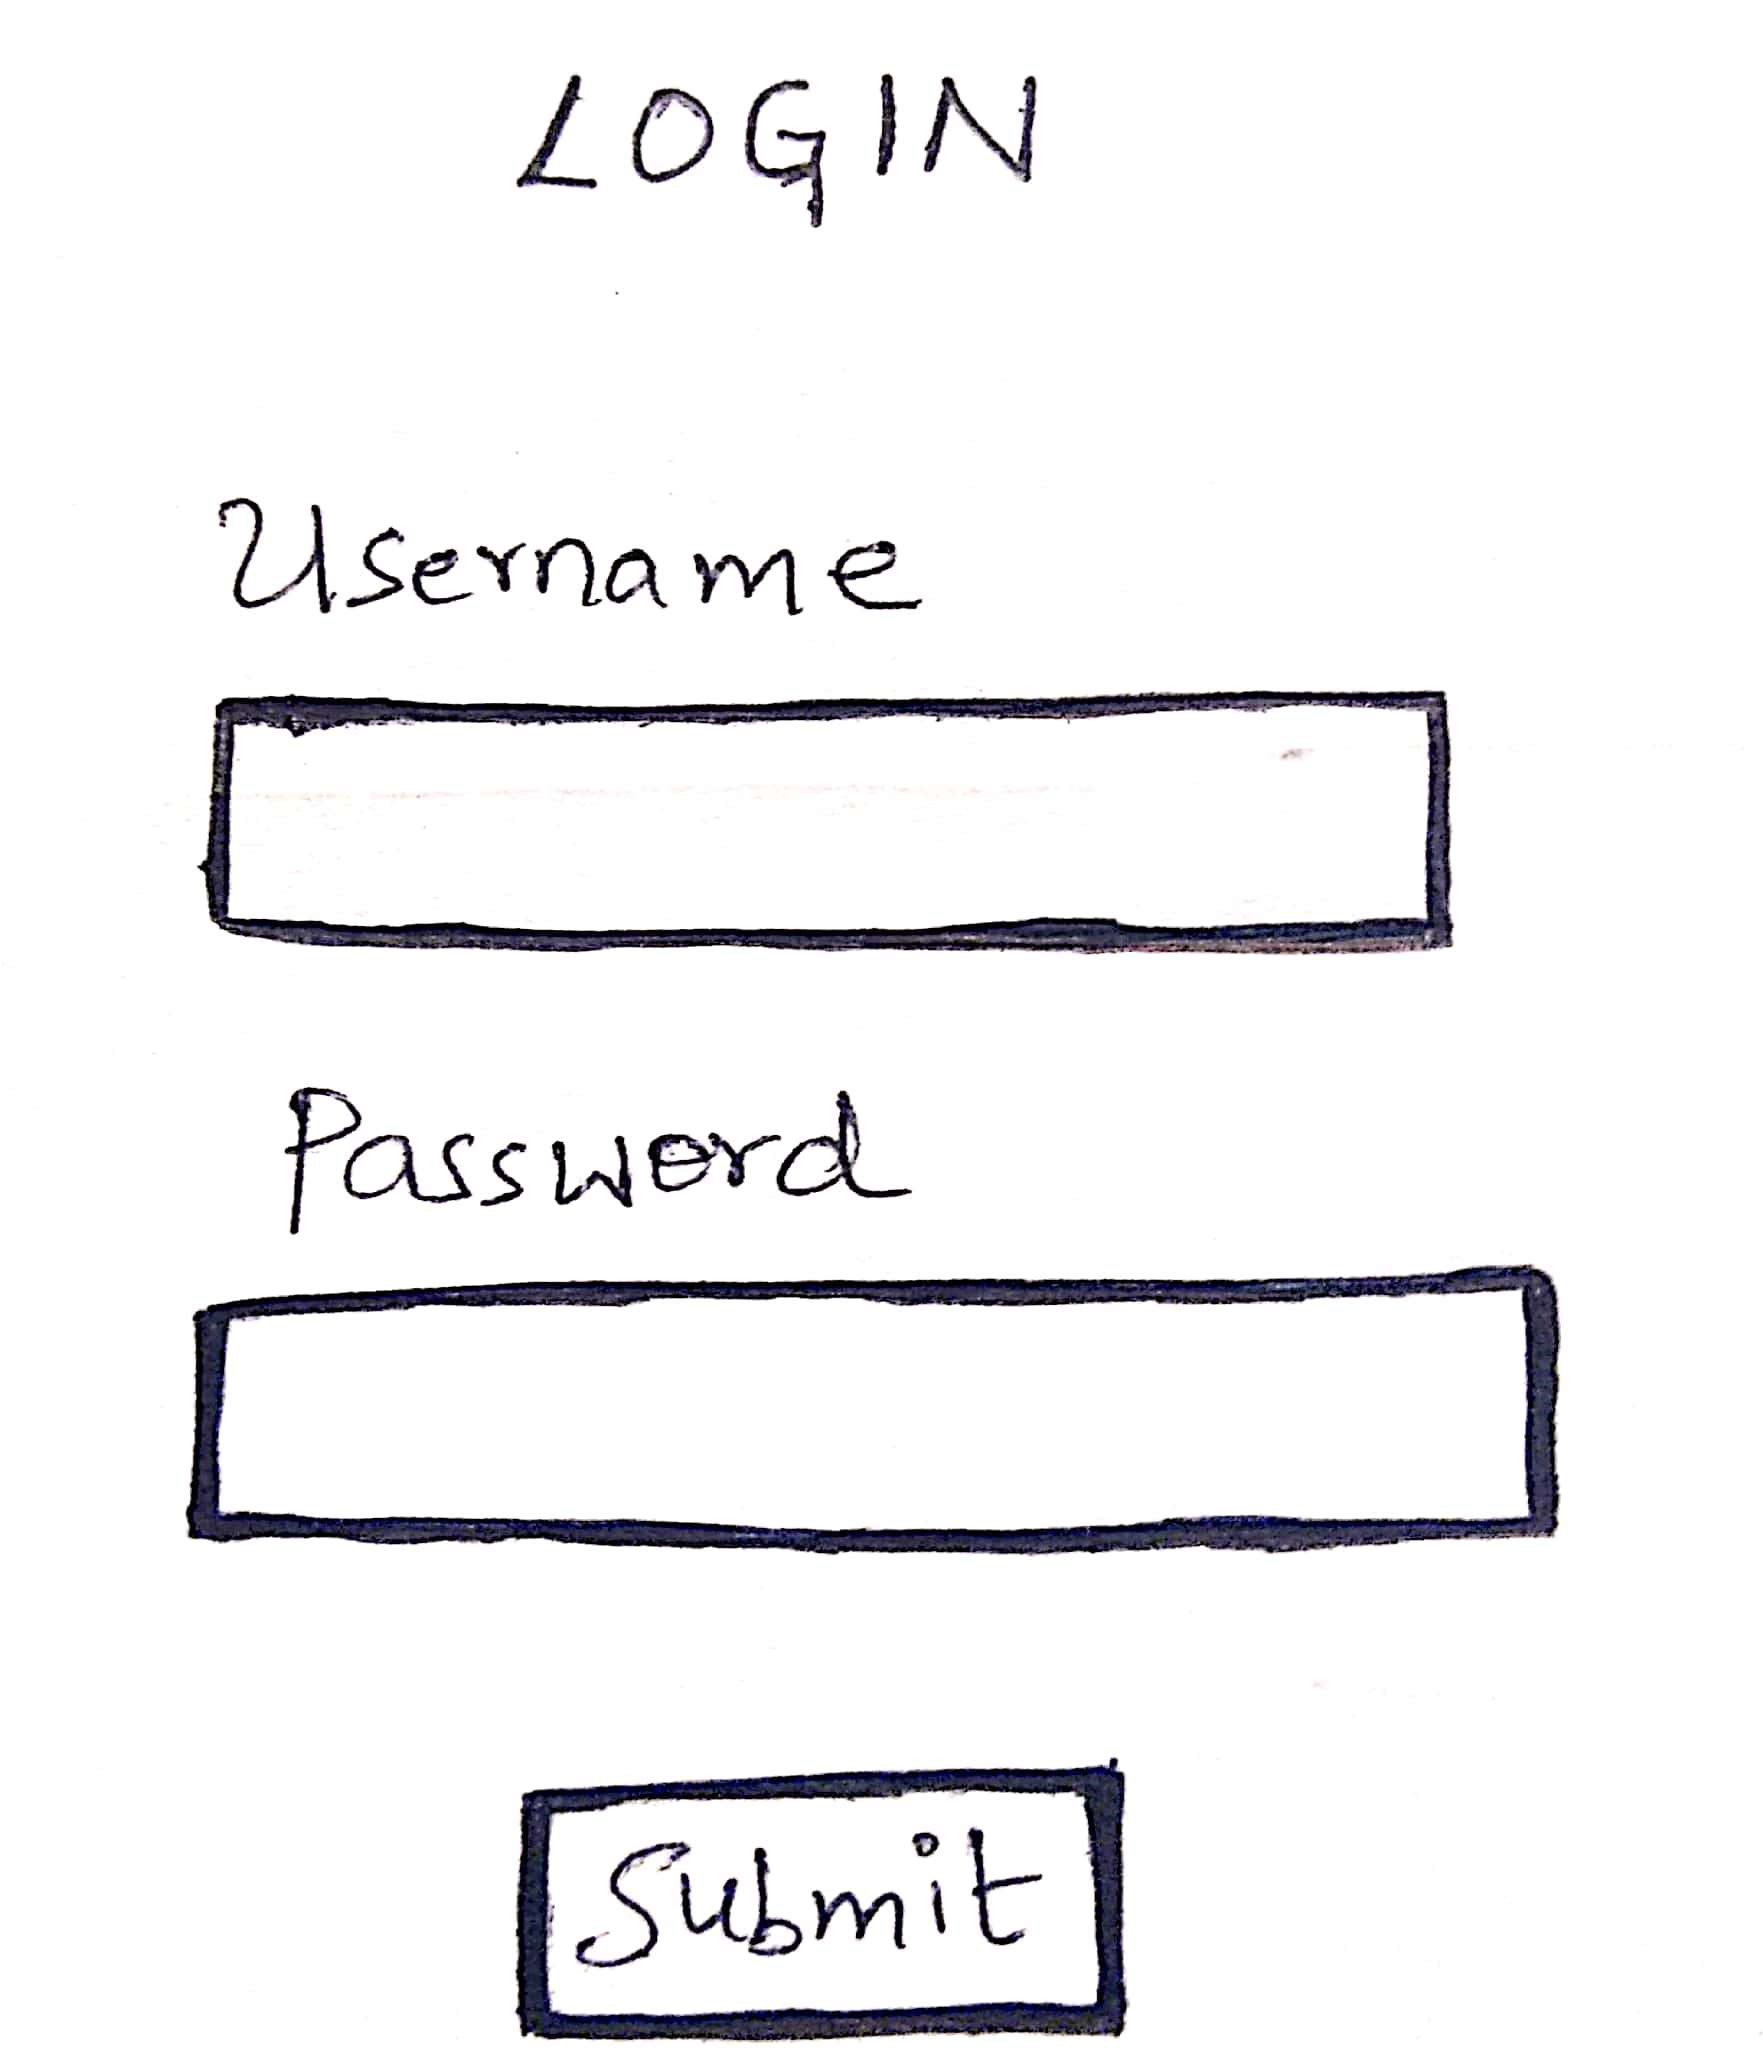 LOGIN
Username
Password
Submit